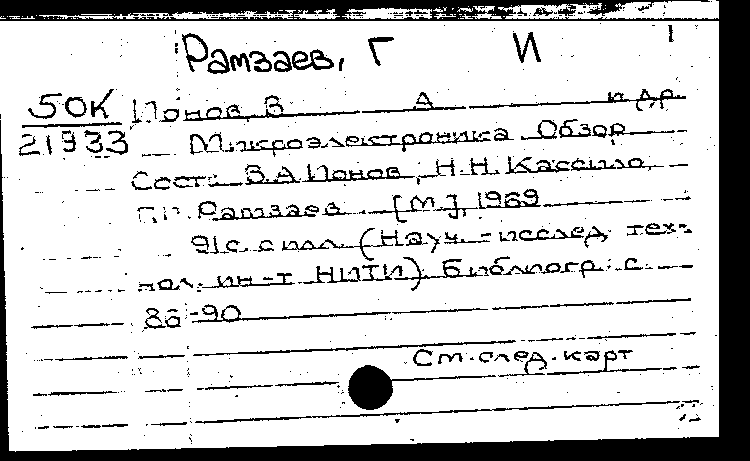 Рамзаев, Г И
50К Ионов, В А и др.
21933 Микроэлектроника. Обзор.
Сост.: В.А.Ионов, Н.Н.Кассило,
Рамзаев. [М.], 1969
91с. с илл. (Науч.-исслед. тех-
нол. ин-т НИТИ). Библиогр.: с.
86-90
См.след.карт